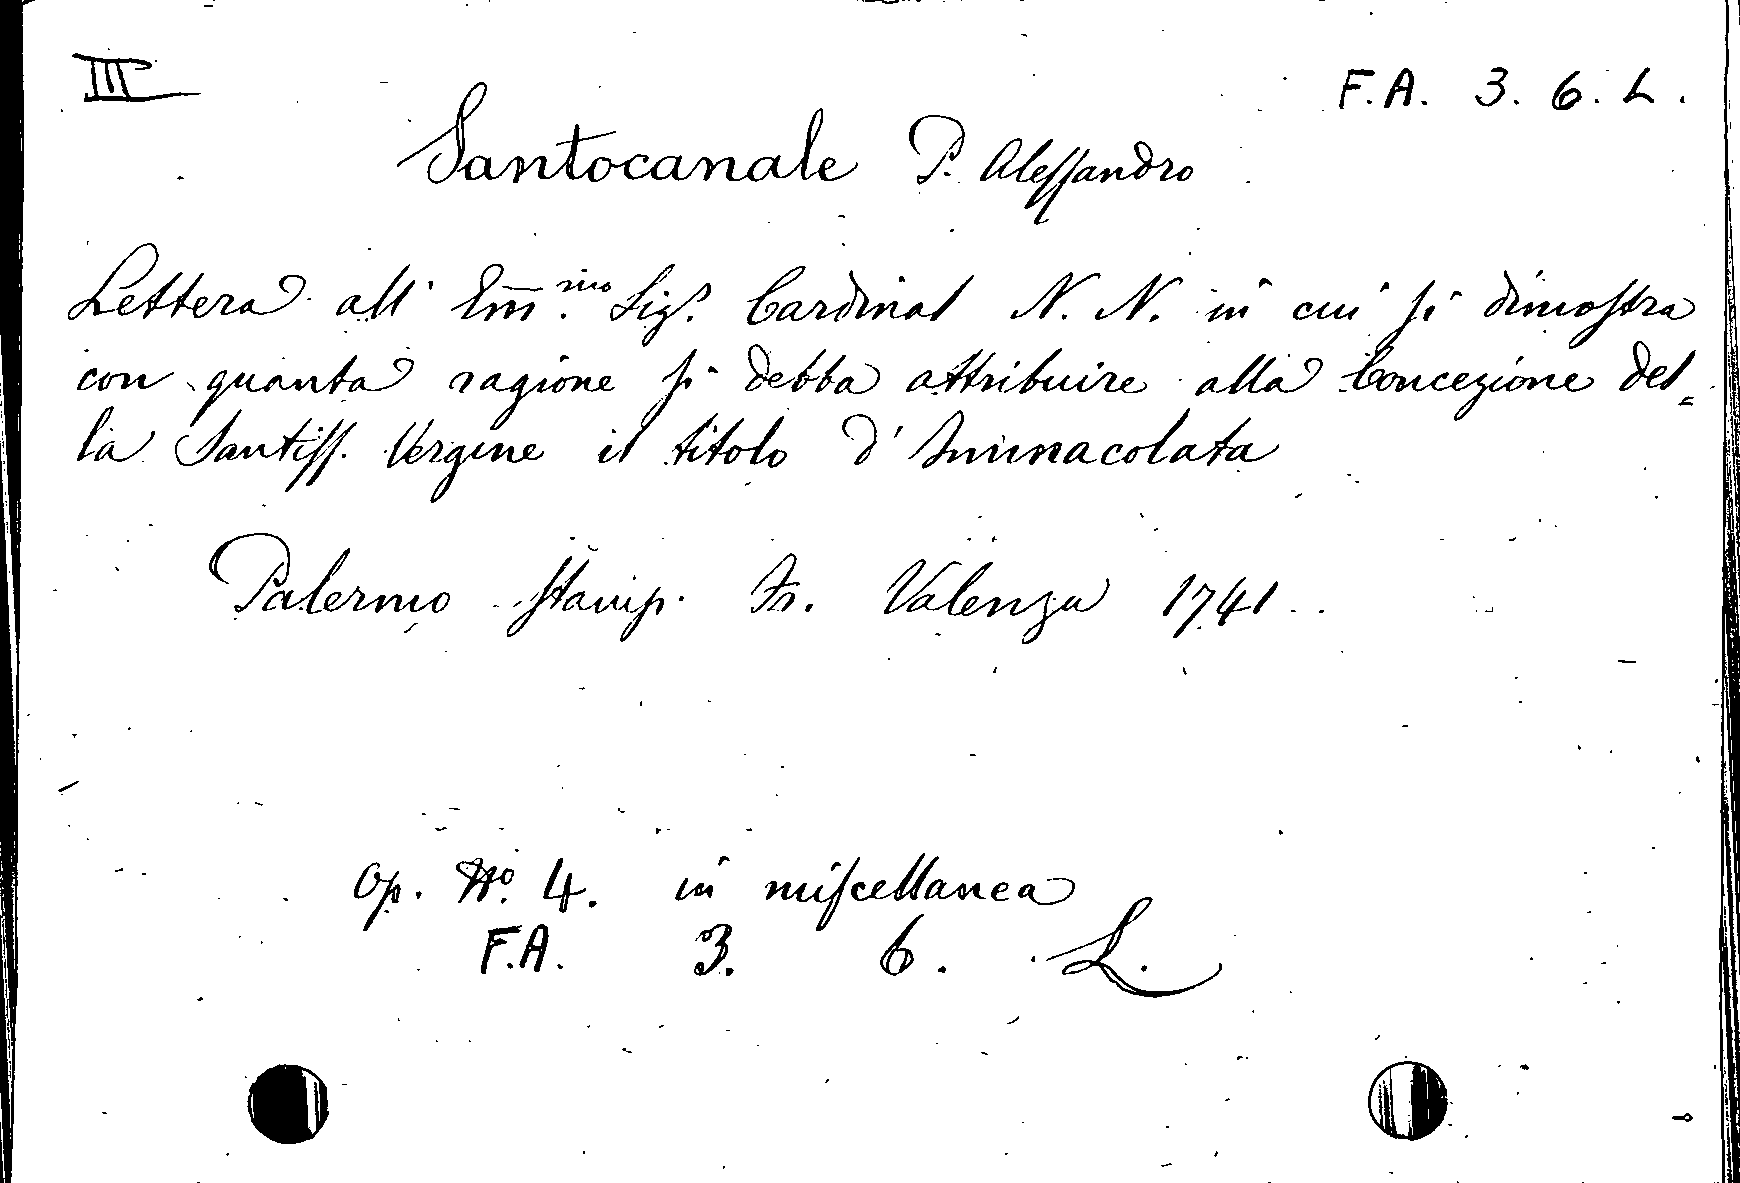 III
F.A. 3. 6. L.
Santocanale P. Alessandro
Lettera all' Em̅.mo Sig.r Cardinal N. N. in cui si dimostra
con quanta ragione si debba attribuire alla Concezione del=
la Santiss. Vergine il titolo d'Immacolata
Palermo Stamp. Fr. Valenza 1741
Op. No. 4. in miscellanea
F.A. 3. 6. L.